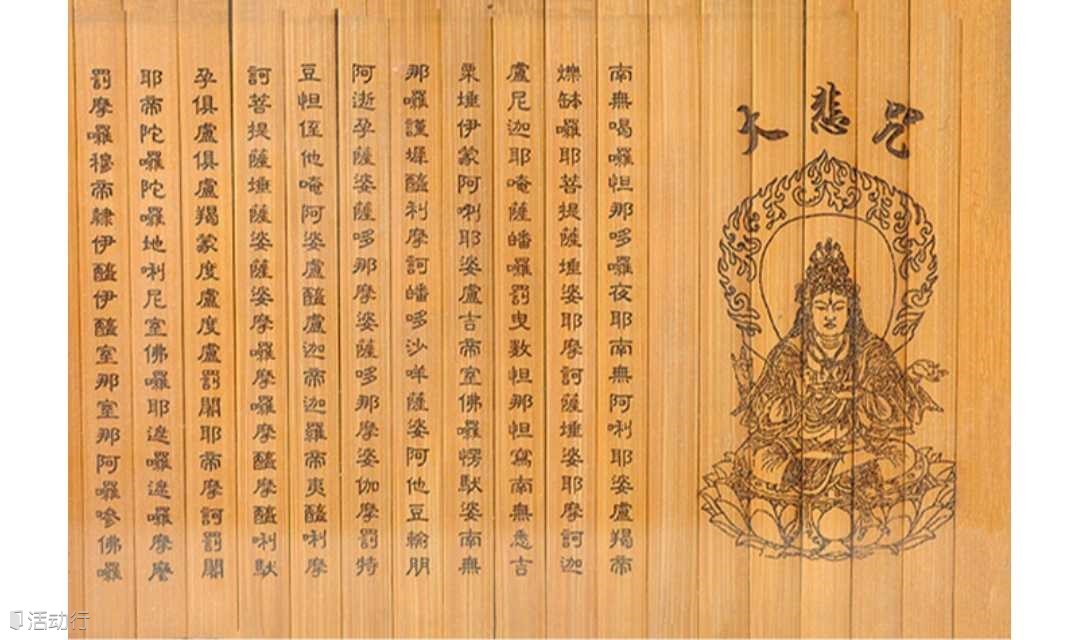 大悲咒
南無喝囉怛那哆囉夜耶南無阿唎耶婆盧羯帝
爍缽囉耶菩提薩埵婆耶摩訶薩埵婆耶摩訶迦
盧尼迦耶唵薩皤囉罰曳数怛那怛寫南無悉吉
栗埵伊蒙阿唎耶婆盧吉帝室佛囉愣馱婆南無
那囉謹墀醯利摩訶皤哆沙咩薩婆阿他豆輸朋
阿逝孕薩婆薩哆那摩婆薩哆那摩婆伽摩罰特
豆怛侄他唵阿婆盧醯盧迦帝迦羅帝夷醯唎摩
訶菩提薩埵薩婆薩婆摩囉摩囉摩醯摩醯唎馱
孕俱盧俱盧羯蒙度盧度盧罰闍耶帝摩訶罰闍
耶帝陀囉陀囉地唎尼室佛囉耶遮囉遮囉摩麼
罰摩囉穆帝隸伊醯伊醯室那室那阿囉嘇佛囉
活动行